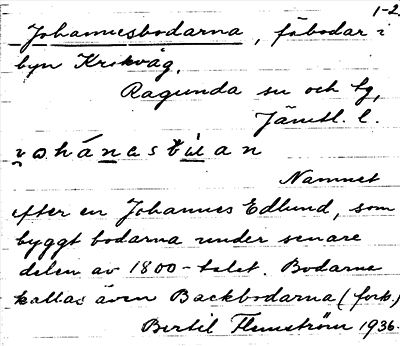 1-2.
Johannesbodarna, fäbodar i
byn Krokvåg.
Ragunda sn och tg,
Jämtl. l.
Namnet
efter en Johannes Edlund, som
byggt bodarna under senare
delen av 1800-talet. Bodarna
kallas även Backbodarna (fork.)
Bertil Flemström 1936.